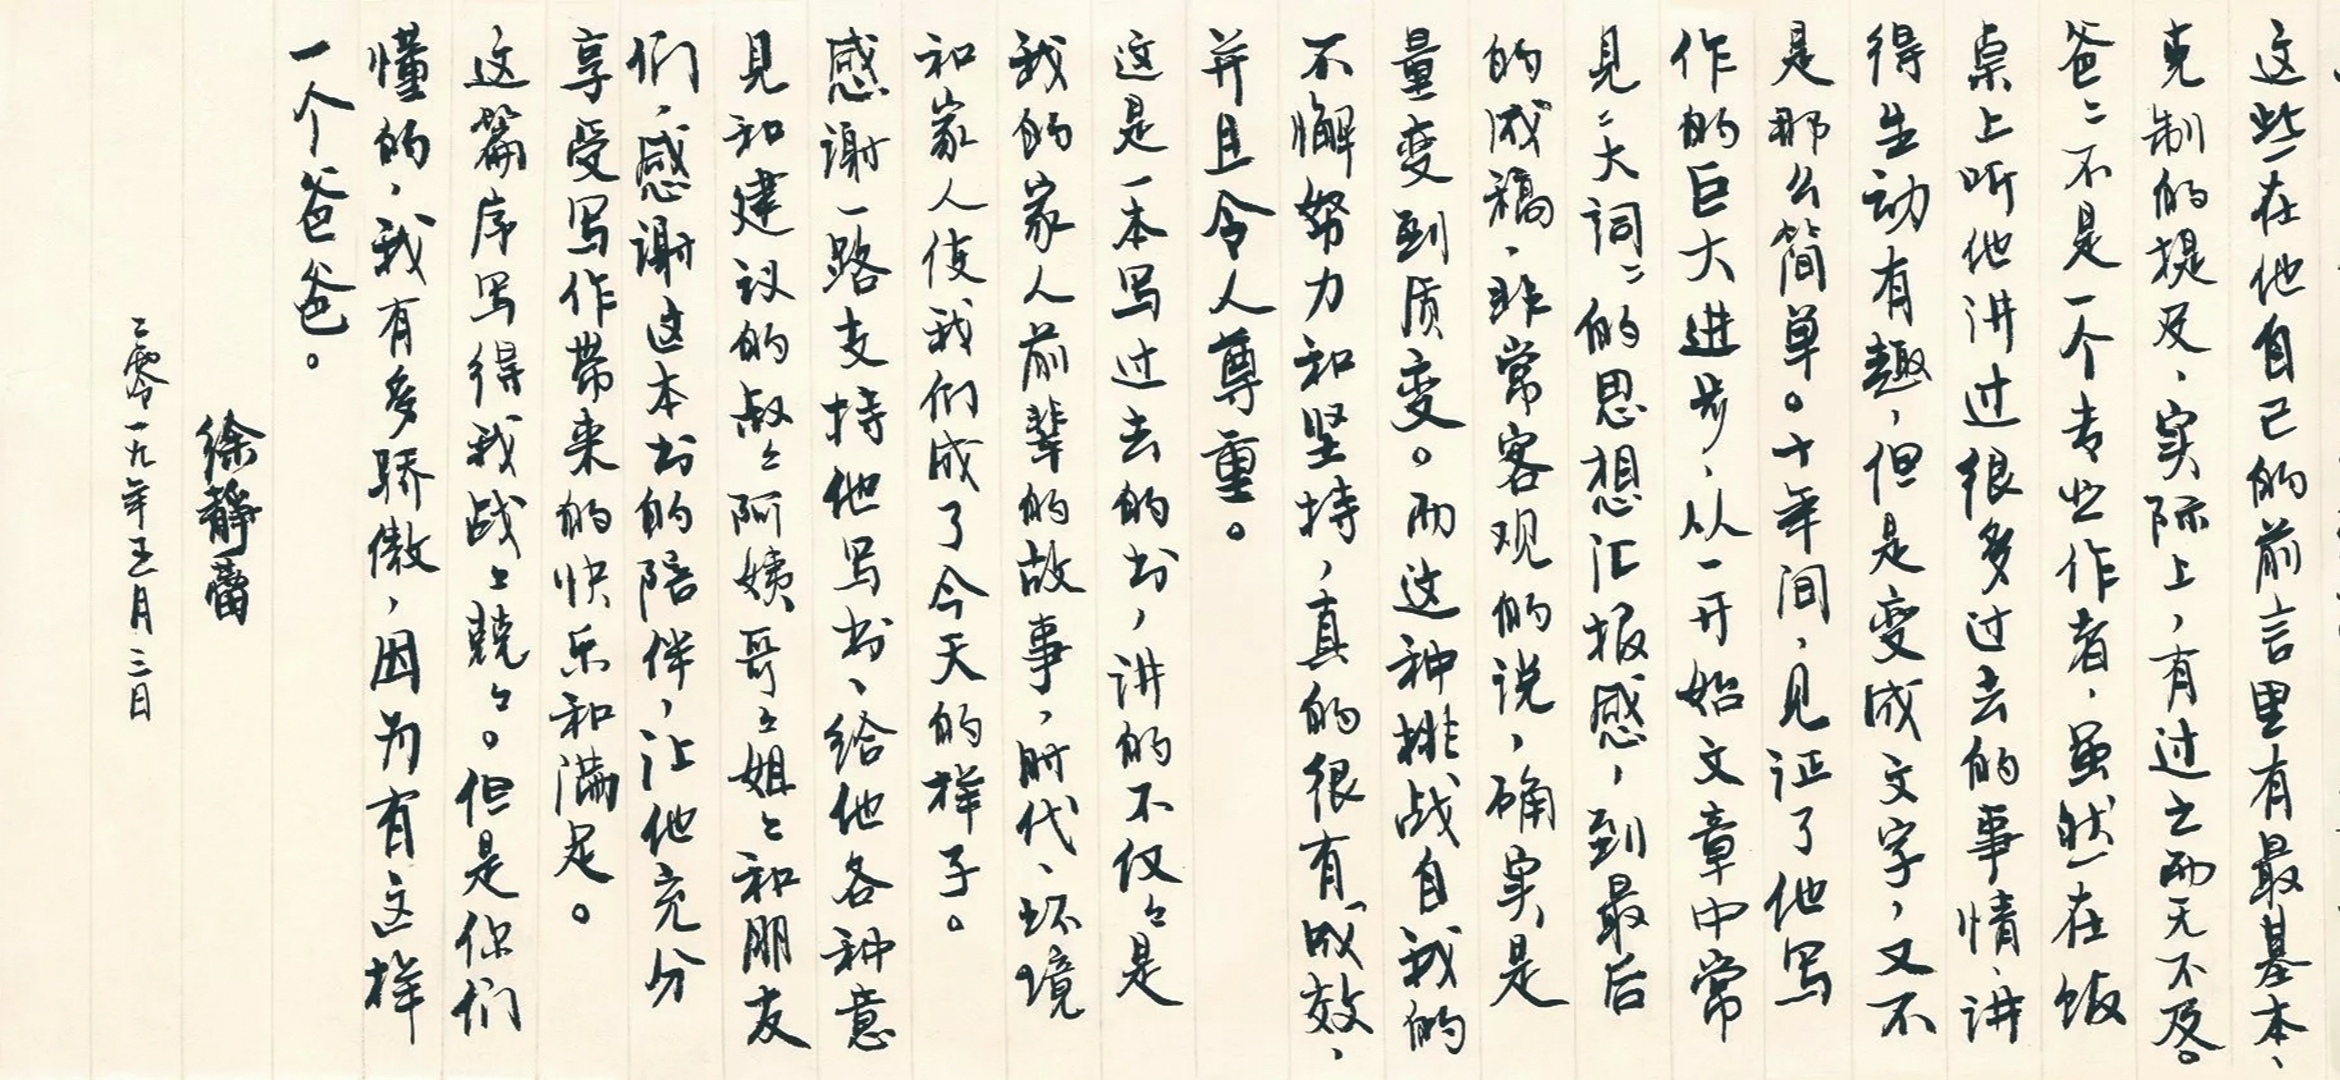 这些在他自己的前言里有最基本、
克制的提及，实际上，有过之而无不及。
爸〻不是一个专业作者，虽然在饭
桌上听他讲过很多过去的事情，讲
得生动有趣，但是变成文字，又不
是那么简单。十年间，见证了他写
作的巨大进步，从一开始文章中常
见〻大词〻的思想汇报感，到最后
的成稿，非常客观的说，确实是
量变到质变。而这种挑战自我的
不懈努力和坚持，真的很有成效，
并且令人尊重。
这是一本写过去的书，讲的不仅〻是
我的家人前辈的故事，时代、环境
和家人使我们成了今天的样子。
感谢一路支持他写书、给他各种意
见和建议的叔〻阿姨哥〻姐〻和朋友
们，感谢这本书的陪伴，让他充分
享受写作带来的快乐和满足。
这篇序写得我战〻兢〻。但是你们
懂的，我有多骄傲，因为有这样
一个爸爸。
徐静蕾
二零一九年五月三日